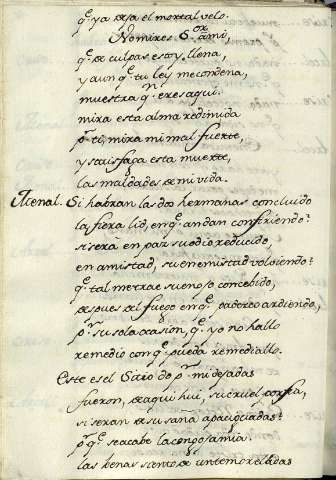 q.e ya dexa el mortal velo.
No mires S.or a mi,
q.e de culpas estoy llena,
y aunq.e tu ley me condena,
muestra q.n eres aqui.
mira esta alma redimida
p.r ti, mira mi mal fuerte,
y satisfaga esta muerte,
las maldades de mi vida.
Si habran las dos hermanas concluido
la fiera lid, en q.e andan confiriendo?
si sera en paz su odio reducido,
en amistad, su enemistad volviendo?
q.e tal me trae sueño concebido,
despues del fuego en q.e padezco ardiendo,
p.r su sola ocasion, q.e yo no hallo
remedio con q.e pueda remediallo.
Este es el Sitio do p.r mi dejadas
fueron, de aqui hui, su cruel porfia,
si seran de su saña apaciguadas?
p.r q.e se acabe la congoja mia.
las venas siento de un temor eladas